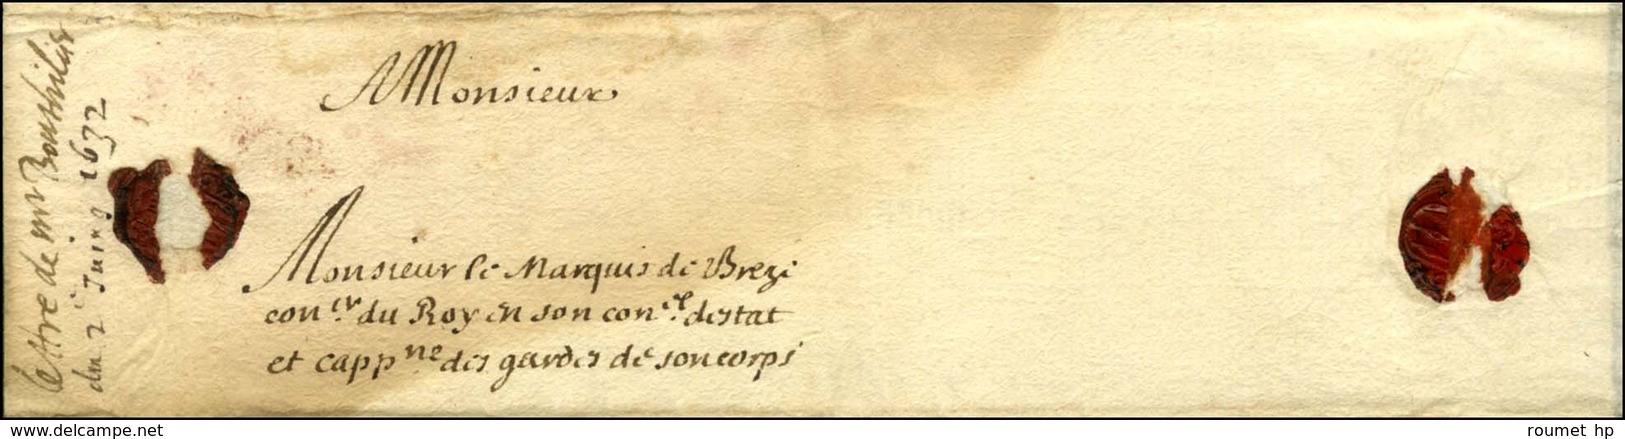 A Monsieur
Monsieur le Marquis de Breze
con.er du Roy en son con.el destat
et cappne des gardes de son corps
lettre de mr Bouthilier
du 2e Juing 1632
www.delcampe.net
roumet hp